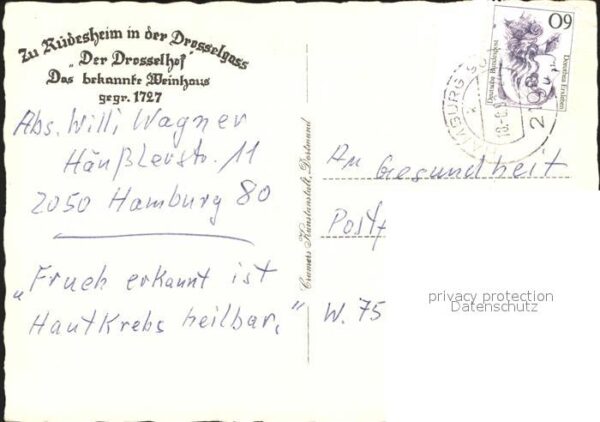 Zu Rüdesheim in der Drosselgass
"Der Drosselhof"
Das bekannte Weinhaus
gegr. 1727
Abs. Willi Wagner
Häußlerstr. 11
2050 Hamburg 80
"Frueh erkannt ist
Hautkrebs heilbar."
Cramers Kunstanstalt, Dortmund
60
Deutsche Bundespost
Dorothea Erxleben
HAMBURG
An Gesundheit
Postf
W. 75
privacy protection
Datenschutz